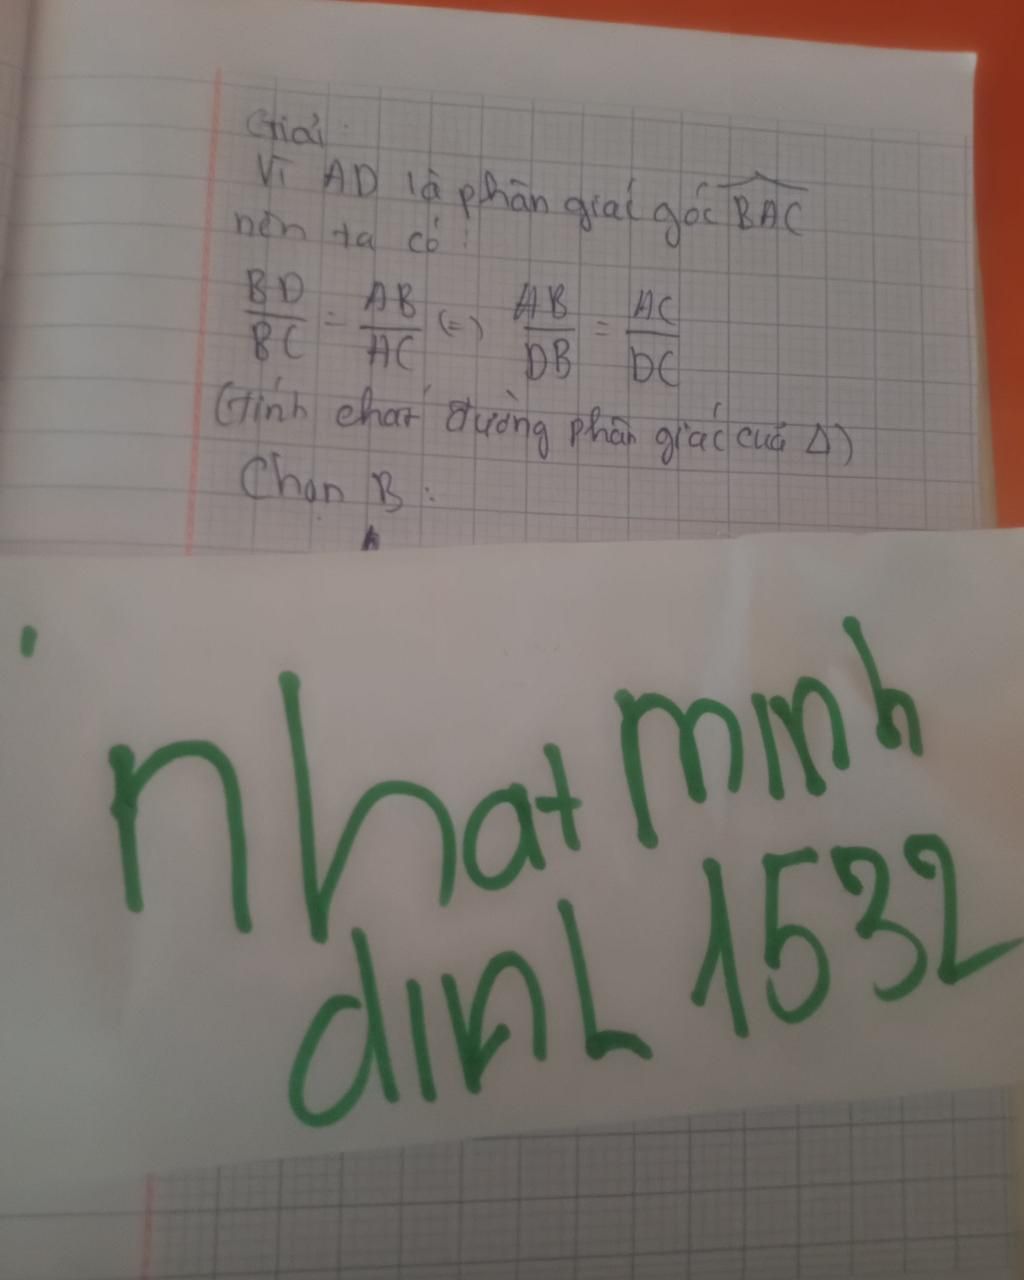 Giải:
Vì AD là phân giác góc BAC
nên ta có:
BD/BC = AB/AC (=) AB/DB = AC/DC
(Tính chat đường phân giác cuả Δ)
Chọn B:
nhat minh
dinh 1532